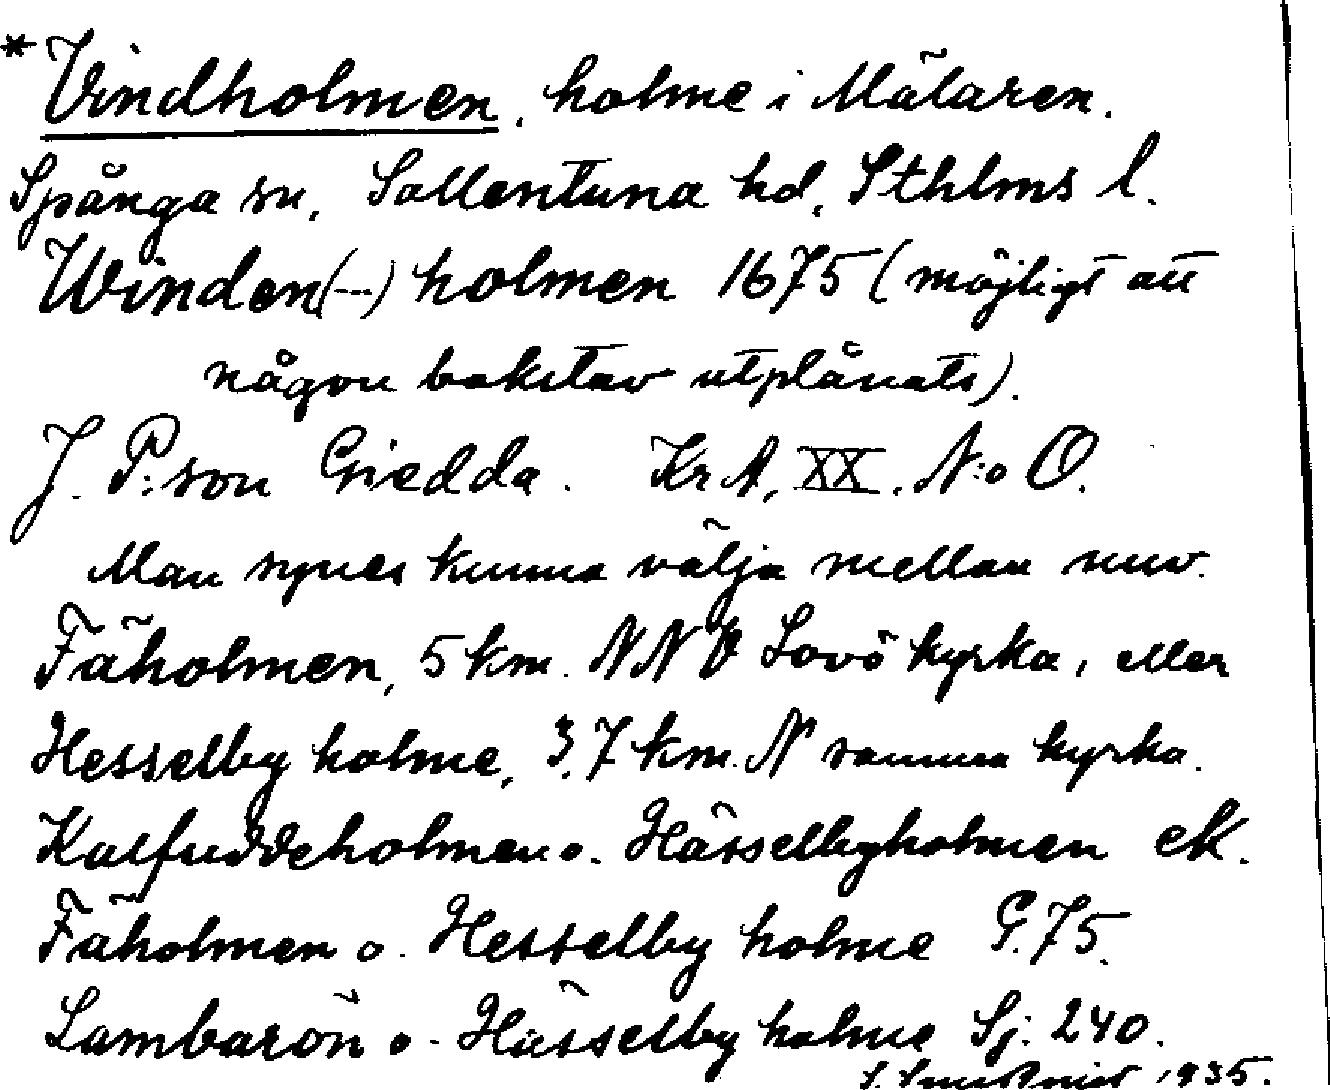 * Vindholmen, holme i Mälaren.
Spånga sn, Sollentuna hd, Sthlms l.
Winden(---) holmen 1675 (möjligt att
någon bokstav utplånats).
J. P:son Giedda. KrA, XX, N:o O.
Man synes kunna välja mellan nuv.
Fäholmen, 5 km. NNV Lovö kyrka, eller
Hesselby holme, 3,7 km. N samma kyrka.
Kalfuddeholmen o. Hässelbyholmen eK.
Fäholmen o. Hesselby holme G. 75.
Lambarön o. Hässelby holme Sj. 240.
1935.